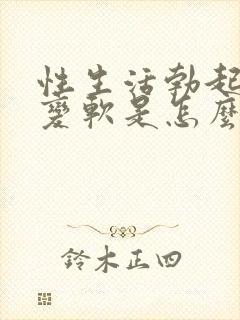 性生活勃起
變軟是怎麼
鈴木正四